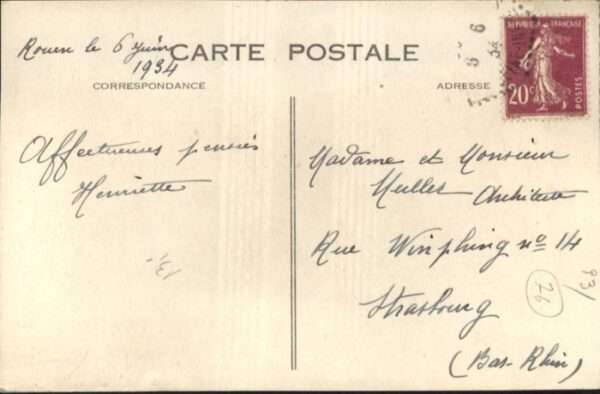 Rouen le 6 juin
1934
CARTE POSTALE
CORRESPONDANCE
ADRESSE
REPUBLIQUE FRANÇAISE
20c
POSTES
Affectueuses pensées
Henriette
Madame et Monsieur
Muller Architecte
Rue Winphling no 14
Strasbourg
(Bas-Rhin)
13,-
93/
26